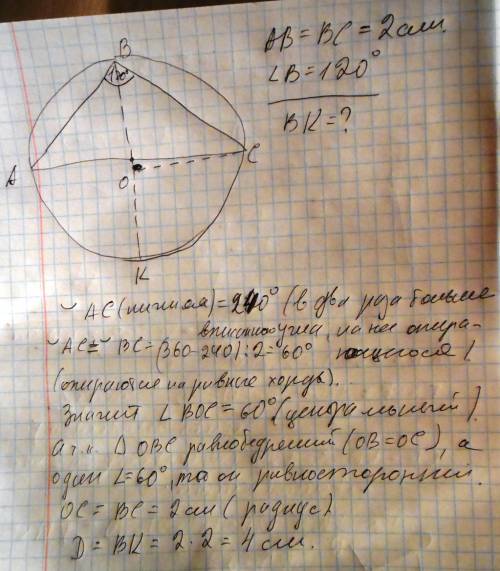 AB = BC = 2 см.
∠B = 120°
BK = ?
B
120°
A
C
O
K
◡ AC (нижняя) = 240° (в два раза больше
вписанного угла, на нее опира-
◡ AC = ◡ BC = (360-240):2 = 60° ющегося)
(опираются на равные хорды).
Значит ∠ BOC = 60° (центральный)
а т.к. Δ OBC равнобедренный (OB = OC), а
один ∠ = 60°, то он равносторонний.
OC = BC = 2 см (радиус)
D = BK = 2 · 2 = 4 см.